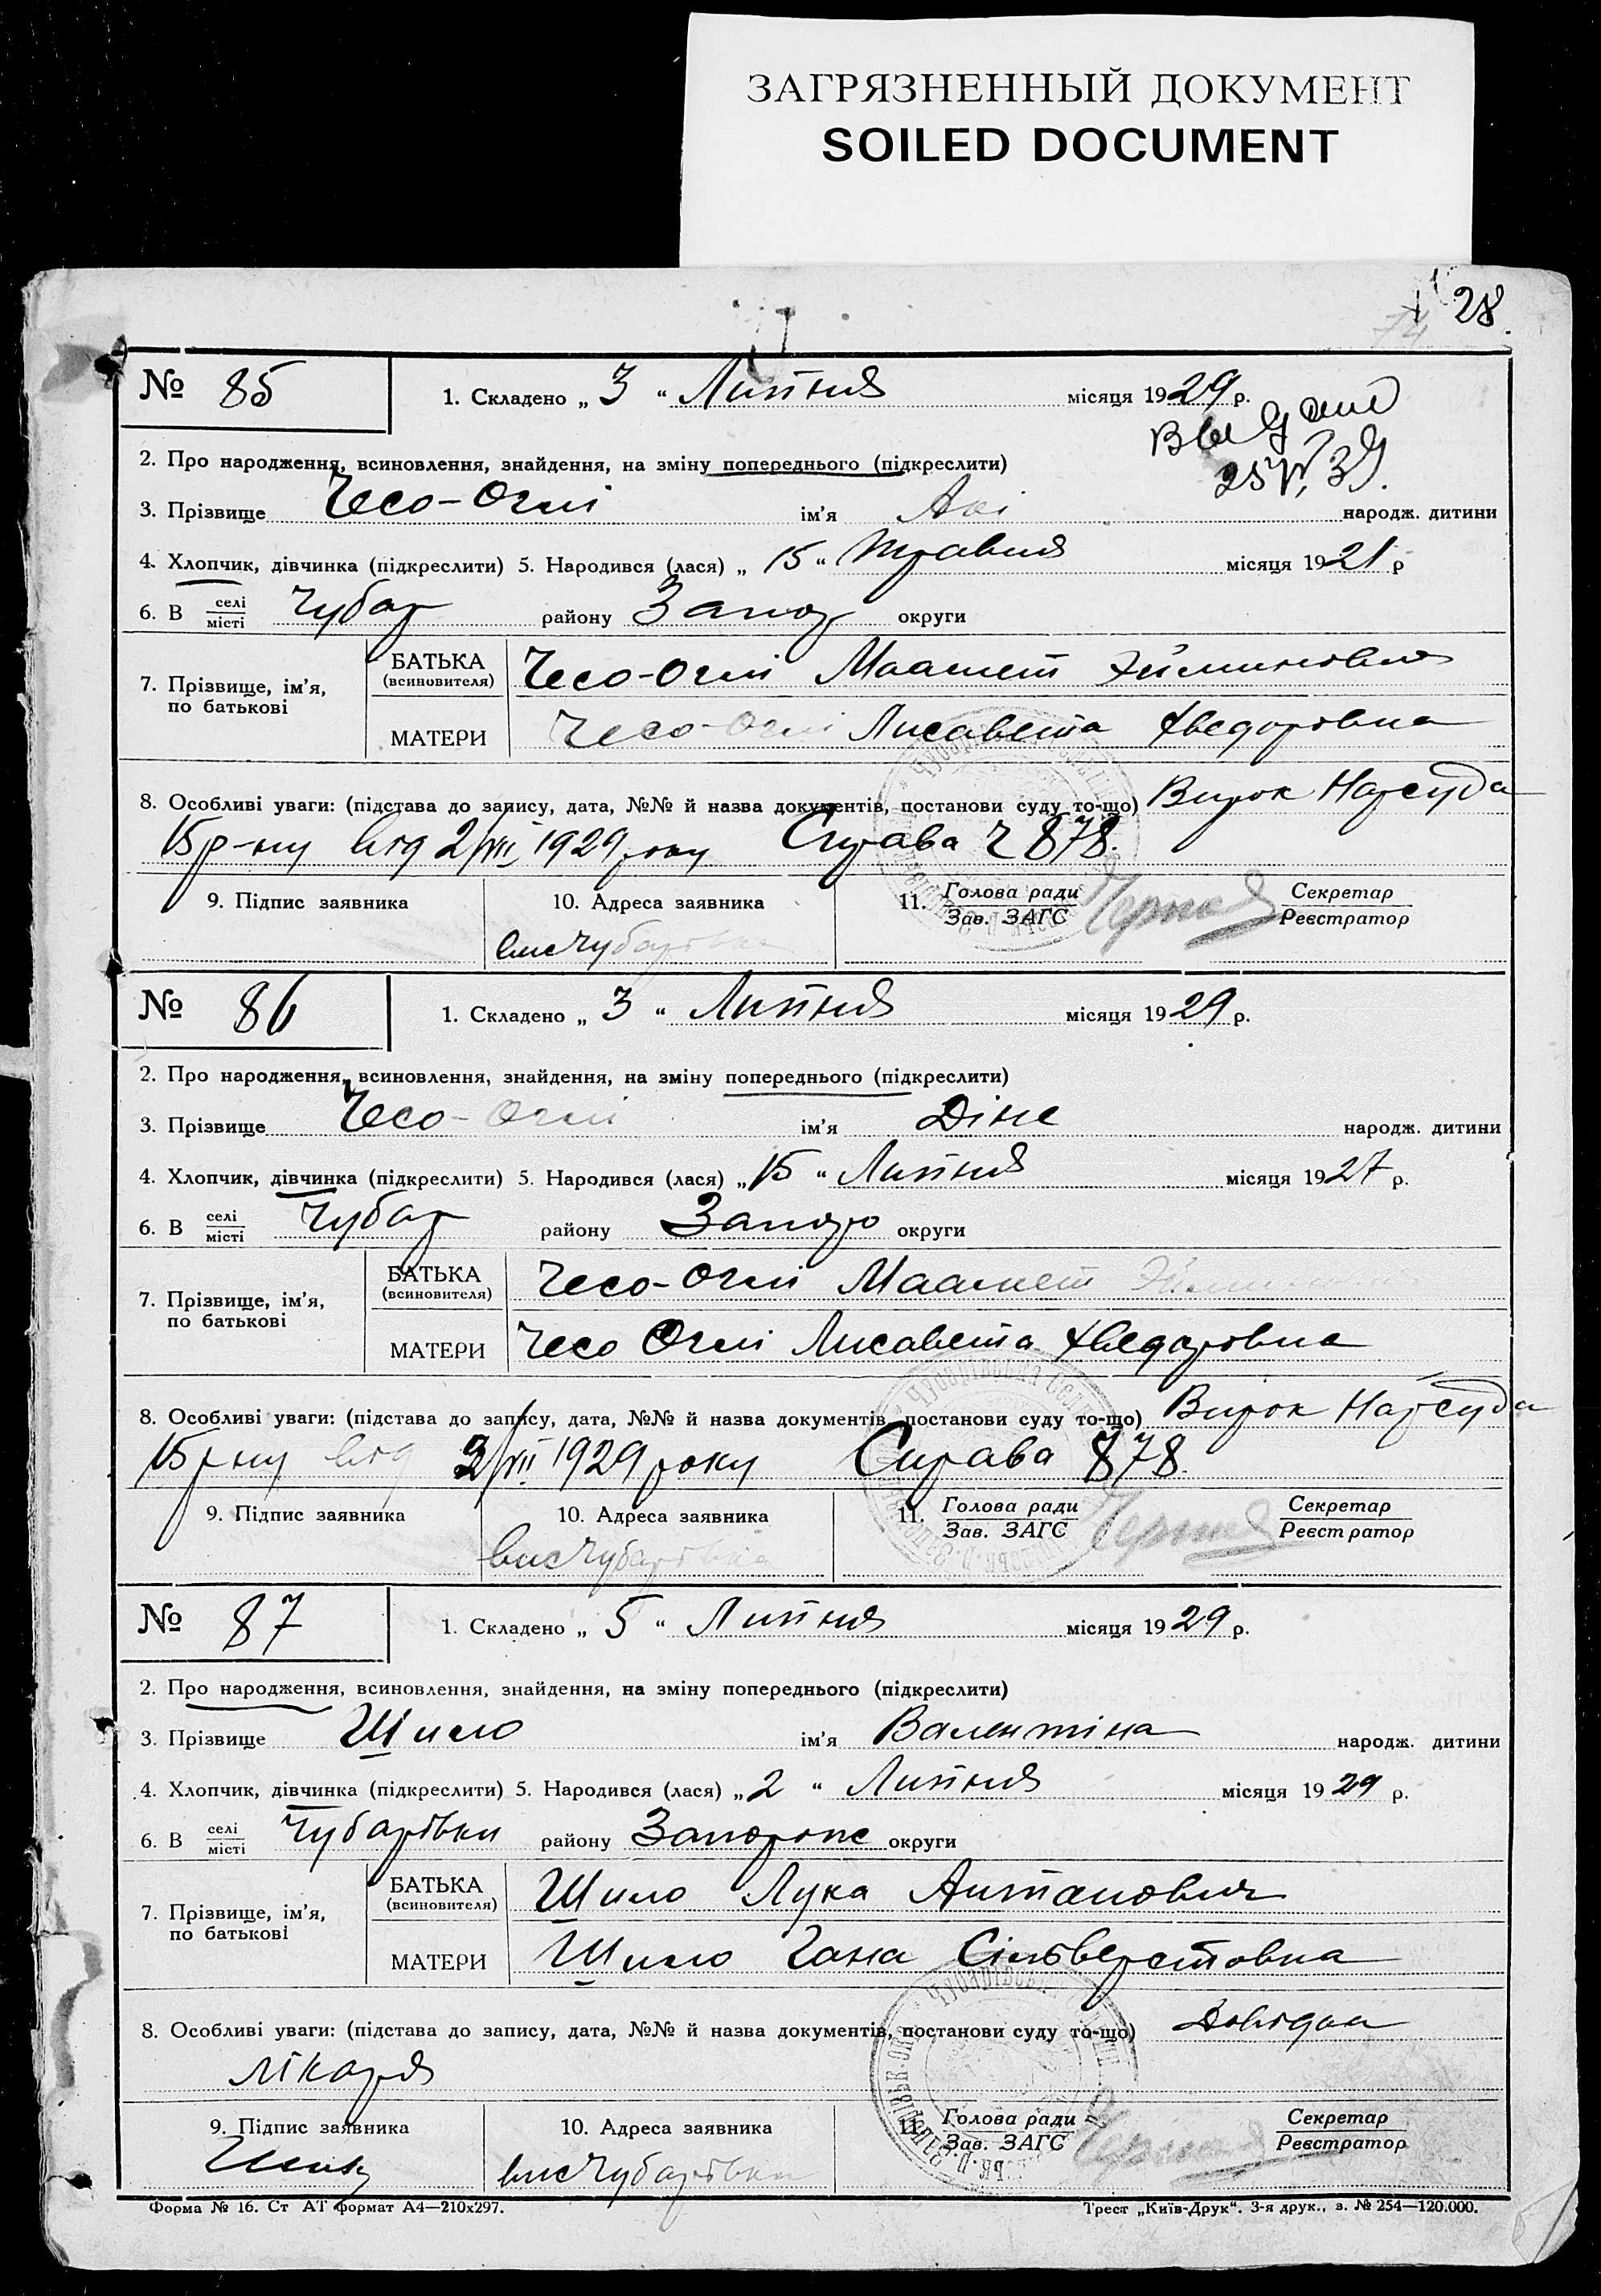 ЗАГРЯЗНЕННЫЙ ДОКУМЕНТ
SOILED DOCUMENT
28.
№ 85
1. Складено „ 3 “ Липня місяця 1929 р.
2. Про народження, всиновлення, знайдення, на зміну попереднього (підкреслити)
25 VI 39.
3. Прізвище Чесо-Огли ім'я народж. дитини
4. Хлопчик, дівчинка (підкреслити) 5. Народився (лася) „ 15 “ Травня місяця 1921 р
6. В селі місті Чубар району Запор округи
7. Прізвище, ім'я, по батькові
БАТЬКА (всиновителя) Чесо-Огли Маамет
МАТЕРИ Чесо-Огли Лисавета Хведоровна
8. Особливі уваги: (підстава до запису, дата, №№ й назва документів, постанови суду то-що) Вирок Нарсуда
15 р-ну від 2/VII 1929 року Справа ч 878.
9. Підпис заявника
10. Адреса заявника
11. Голова ради Зав. ЗАГС
Секретар Реєстратор
вис Чубарівка
№ 86
1. Складено „ 3 “ Липня місяця 1929 р.
2. Про народження, всиновлення, знайдення, на зміну попереднього (підкреслити)
3. Прізвище Чесо-Огли ім'я Діне народж. дитини
4. Хлопчик, дівчинка (підкреслити) 5. Народився (лася) „ 15 “ Липня місяця 1927 р.
6. В селі місті Чубар району Запор округи
7. Прізвище, ім'я, по батькові
БАТЬКА (всиновителя) Чесо-Огли Маамет
МАТЕРИ Чесо Огли Лисавета Хведоровна
8. Особливі уваги: (підстава до запису, дата, №№ й назва документів, постанови суду то-що) Вирок Нарсуда
15 р-ну від 2/VII 1929 року Справа 878.
9. Підпис заявника
10. Адреса заявника
11. Голова ради Зав. ЗАГС
Секретар Реєстратор
вис Чубарівка
№ 87
1. Складено „ 5 “ Липня місяця 1929 р.
2. Про народження, всиновлення, знайдення, на зміну попереднього (підкреслити)
3. Прізвище Шило ім'я Валентіна народж. дитини
4. Хлопчик, дівчинка (підкреслити) 5. Народився (лася) „ 2 “ Липня місяця 1929 р.
6. В селі місті Чубарівки району Запоріж округи
7. Прізвище, ім'я, по батькові
БАТЬКА (всиновителя) Шило Лука Антанович
МАТЕРИ Шило Гана Сільверстовна
8. Особливі уваги: (підстава до запису, дата, №№ й назва документів, постанови суду то-що) Довідка
лікаря
9. Підпис заявника
10. Адреса заявника
11. Голова ради Зав. ЗАГС
Секретар Реєстратор
вис Чубарівка
Форма № 16. Ст АТ формат А4—210х297.
Трест „Київ-Друк“. 3-я друк., з. № 254—120.000.